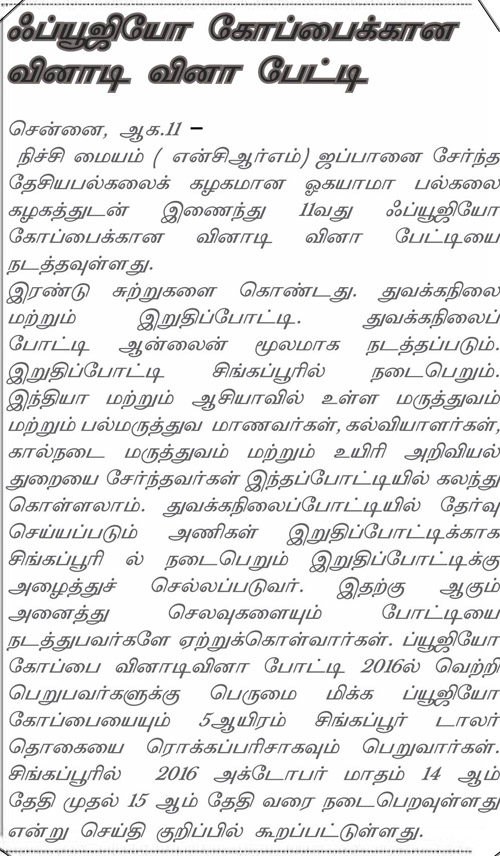 ஃப்யூஜியோ கோப்பைக்கான
வினாடி வினா பேட்டி
சென்னை, ஆக.11 –
நிச்சி மையம் ( என்சிஆர்எம்) ஜப்பானை சேர்ந்த
தேசியபல்கலைக் கழகமான ஓகயாமா பல்கலை
கழகத்துடன் இணைந்து 11வது ஃப்யூஜியோ
கோப்பைக்கான வினாடி வினா பேட்டியை
நடத்தவுள்ளது.
இரண்டு சுற்றுகளை கொண்டது. துவக்கநிலை
மற்றும் இறுதிப்போட்டி. துவக்கநிலைப்
போட்டி ஆன்லைன் மூலமாக நடத்தப்படும்.
இறுதிப்போட்டி சிங்கப்பூரில் நடைபெறும்.
இந்தியா மற்றும் ஆசியாவில் உள்ள மருத்துவம்
மற்றும் பல்மருத்துவ மாணவர்கள், கல்வியாளர்கள்,
கால்நடை மருத்துவம் மற்றும் உயிரி அறிவியல்
துறையை சேர்ந்தவர்கள் இந்தப்போட்டியில் கலந்து
கொள்ளலாம். துவக்கநிலைப்போட்டியில் தேர்வு
செய்யப்படும் அணிகள் இறுதிப்போட்டிக்காக
சிங்கப்பூரி ல் நடைபெறும் இறுதிப்போட்டிக்கு
அழைத்துச் செல்லப்படுவர். இதற்கு ஆகும்
அனைத்து செலவுகளையும் போட்டியை
நடத்துபவர்களே ஏற்றுக்கொள்வார்கள். ப்யூஜியோ
கோப்பை வினாடிவினா போட்டி 2016ல் வெற்றி
பெறுபவர்களுக்கு பெருமை மிக்க ப்யூஜியோ
கோப்பையையும் 5ஆயிரம் சிங்கப்பூர் டாலர்
தொகையை ரொக்கப்பரிசாகவும் பெறுவார்கள்.
சிங்கப்பூரில் 2016 அக்டோபர் மாதம் 14 ஆம்
தேதி முதல் 15 ஆம் தேதி வரை நடைபெறவுள்ளது
என்று செய்தி குறிப்பில் கூறப்பட்டுள்ளது.